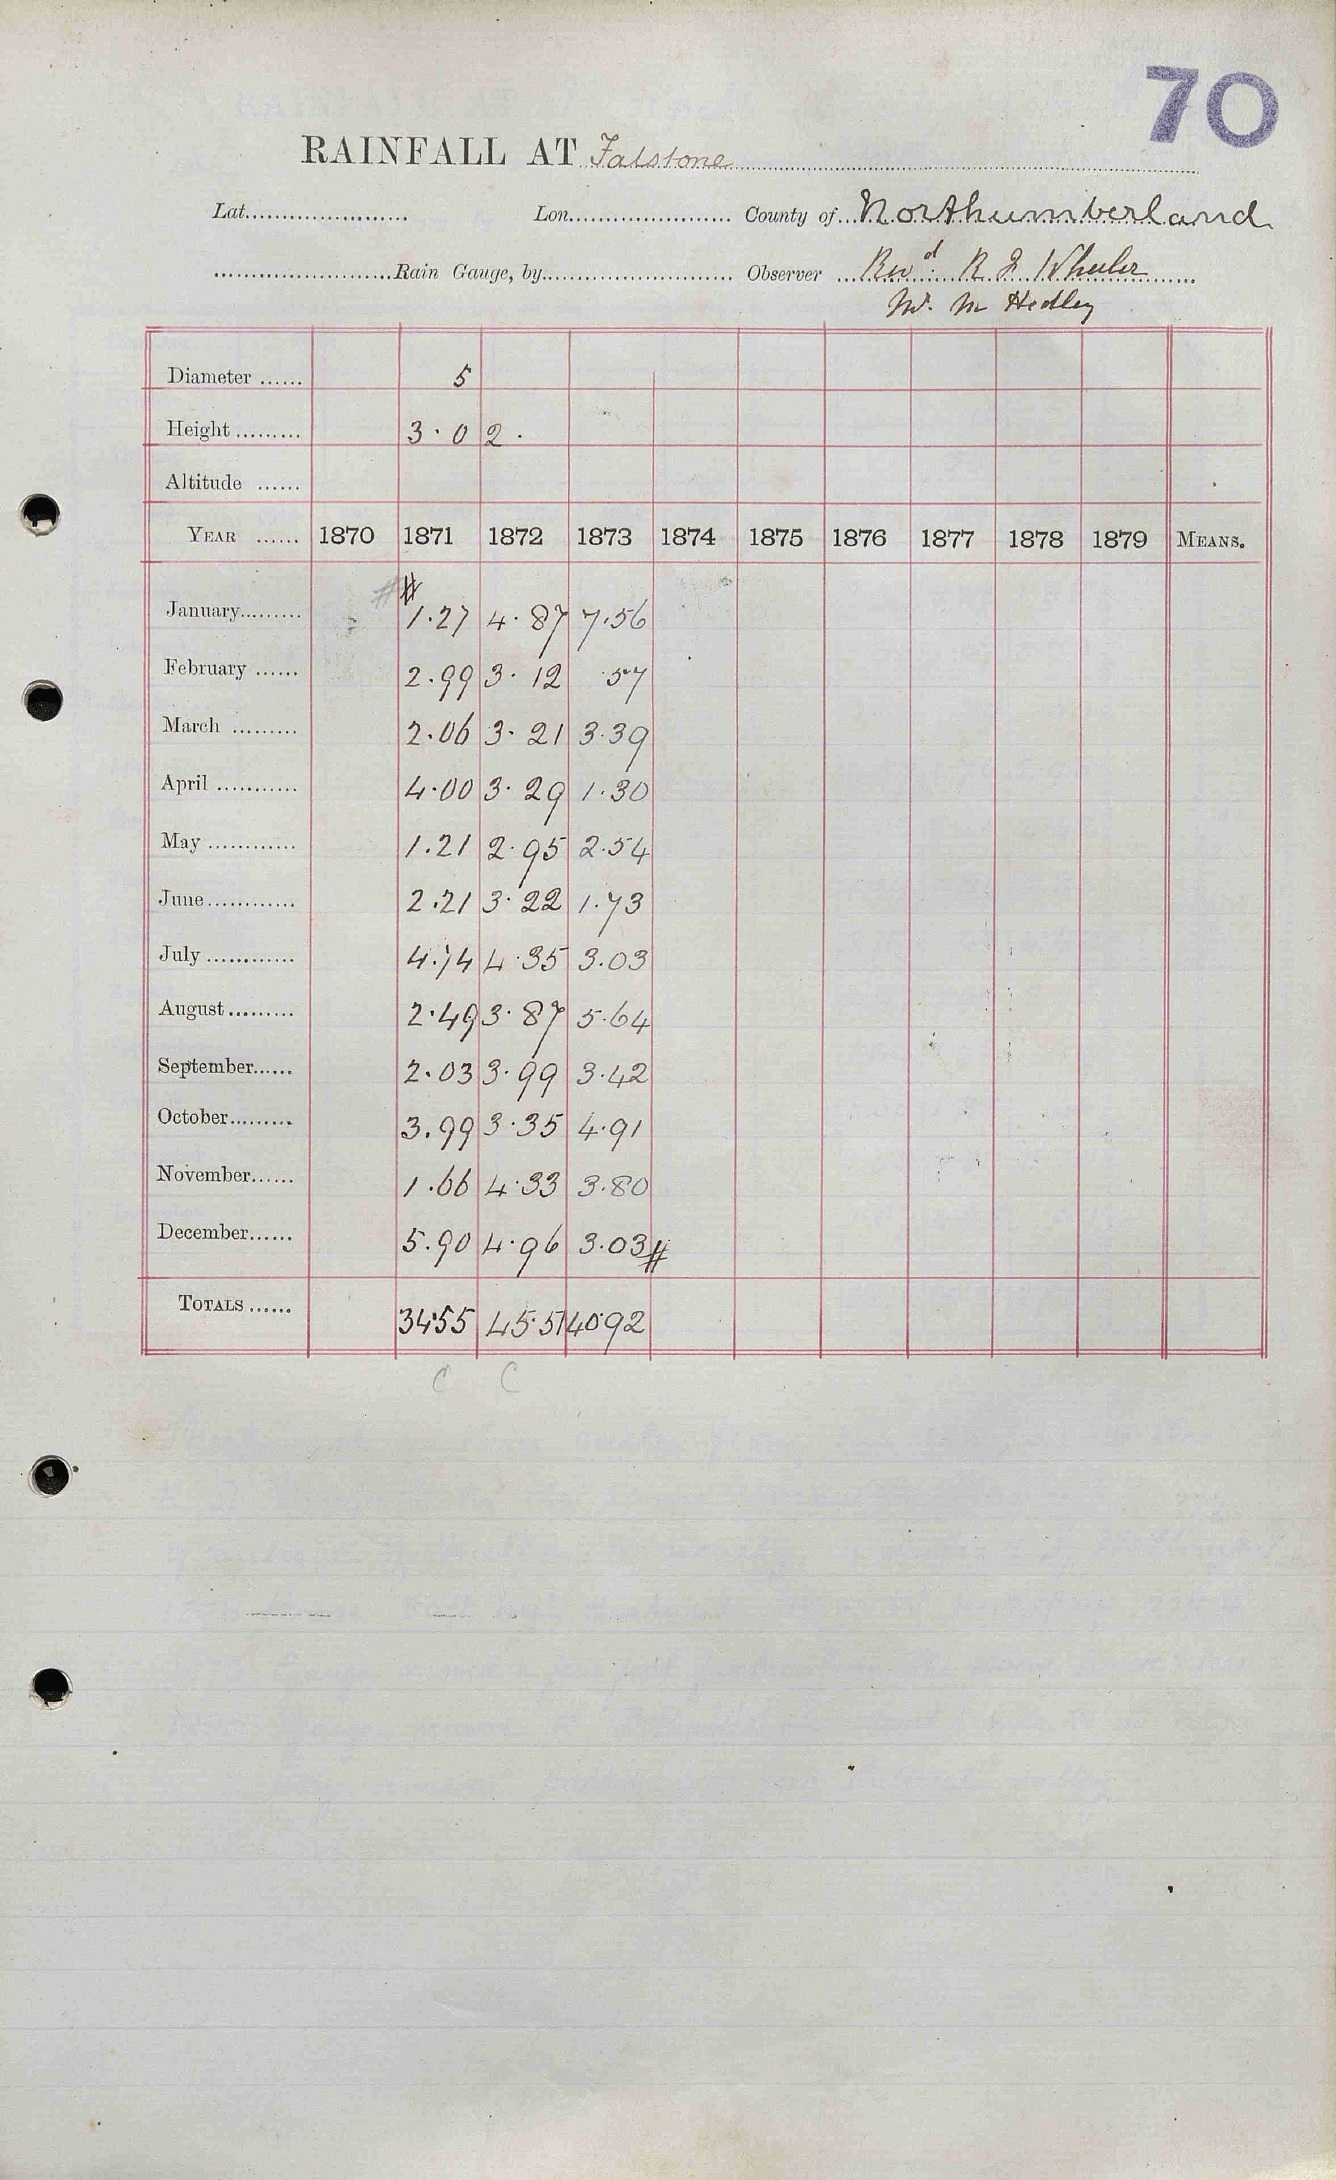 70
RAINFALL AT Falstone
Lat. Lon. County of Northumberland
Rain Gauge, by Observer Revd. R F Wheeler
Mr. M Hedley
Diameter ...... 5
Height ......... 3·0 2·
Altitude ......
YEAR ...... 1870 1871 1872 1873 1874 1875 1876 1877 1878 1879 MEANS.
# #
January......... 1.27 4.87 7.56
February ...... 2.99 3.12 .57
March ......... 2.06 3.21 3.39
April ........... 4.00 3.29 1.30
May ............ 1.21 2.95 2.54
June............ 2.21 3.22 1.73
July ............ 4.74 4.35 3.03
August......... 2.49 3.87 5.64
September...... 2.03 3.99 3.42
October......... 3.99 3.35 4.91
November...... 1.66 4.33 3.80
December...... 5.90 4.96 3.03 #
TOTALS ...... 34.55 45.51 40.92
C C